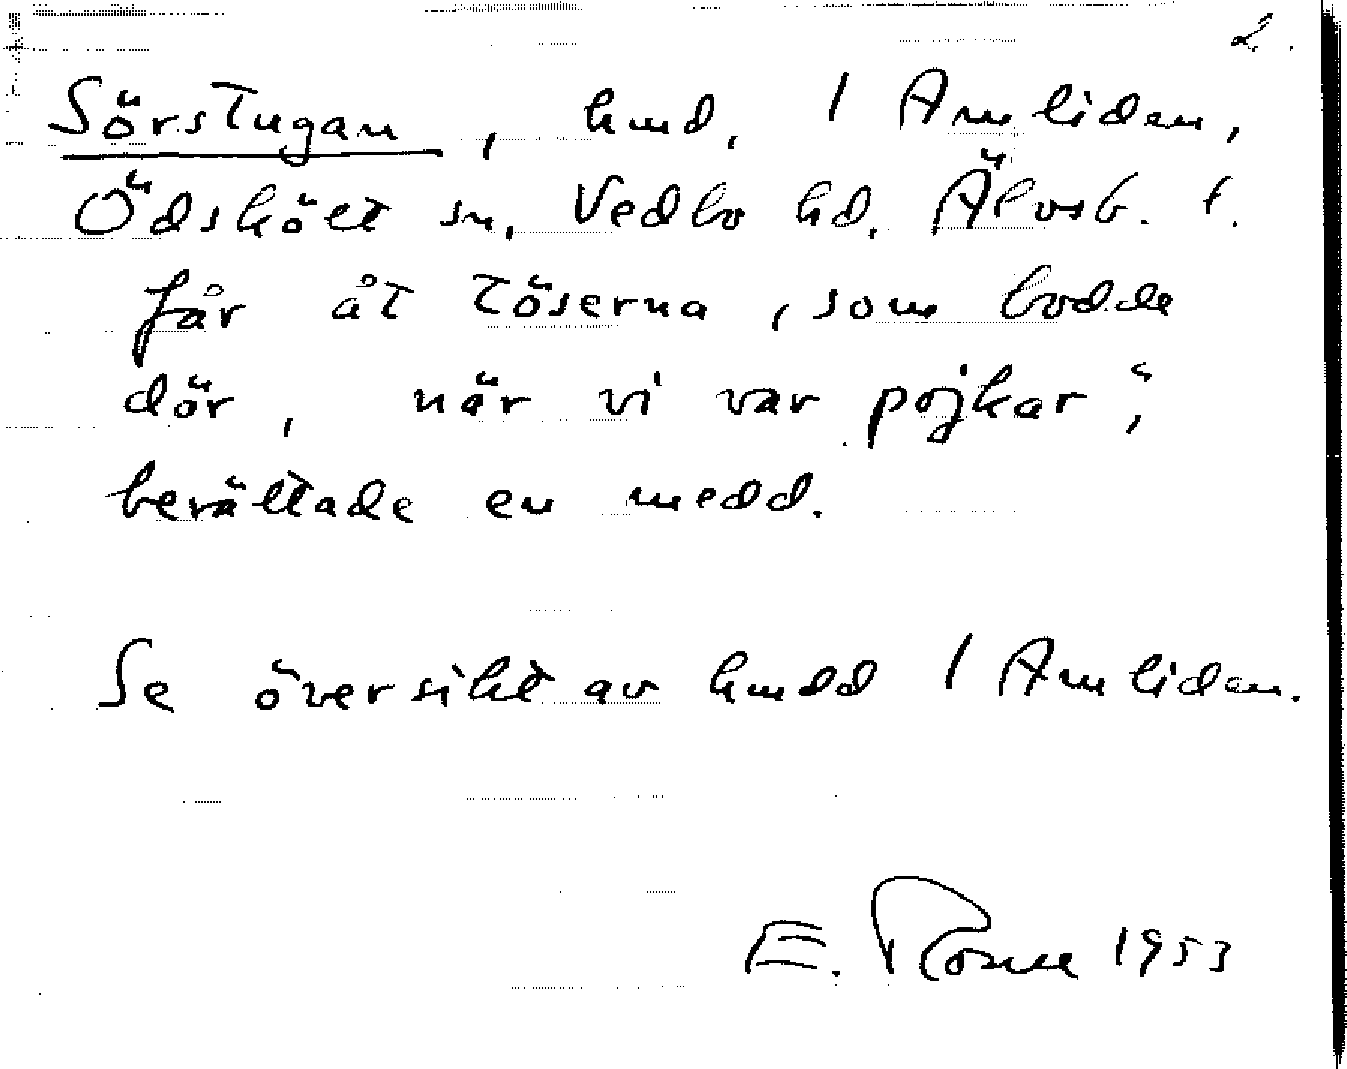 2.
Sörstugan, hmd, 1 Amliden,
Ödskölt sn, Vedbo hd, Älvsb. l.
får åt töserna, som bodde
dör, när vi var pojkar",
berättade en medd.
Se översikt av hmdd 1 Amliden.
E. 1953